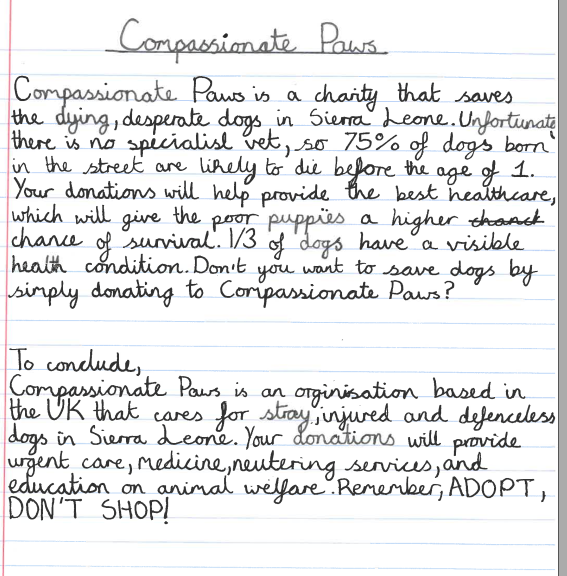 Compassionate Paws
Compassionate Paws is a charity that saves
the dying, desperate dogs in Sierra Leone. Unfortunate
there is no specialist vet, so 75% of dogs born
in the street are likely to die before the age of 1.
Your donations will help provide the best healthcare,
which will give the poor puppies a higher chanck
chance of survival. 1/3 of dogs have a visible
health condition. Don't you want to save dogs by
simply donating to Compassionate Paws?
To conclude,
Compassionate Paws is an orginisation based in
the UK that cares for stray, injured and defenceless
dogs in Sierra Leone. Your donations will provide
urgent care, medicine, neutering services, and
education on animal welfare. Remember, ADOPT,
DON'T SHOP!